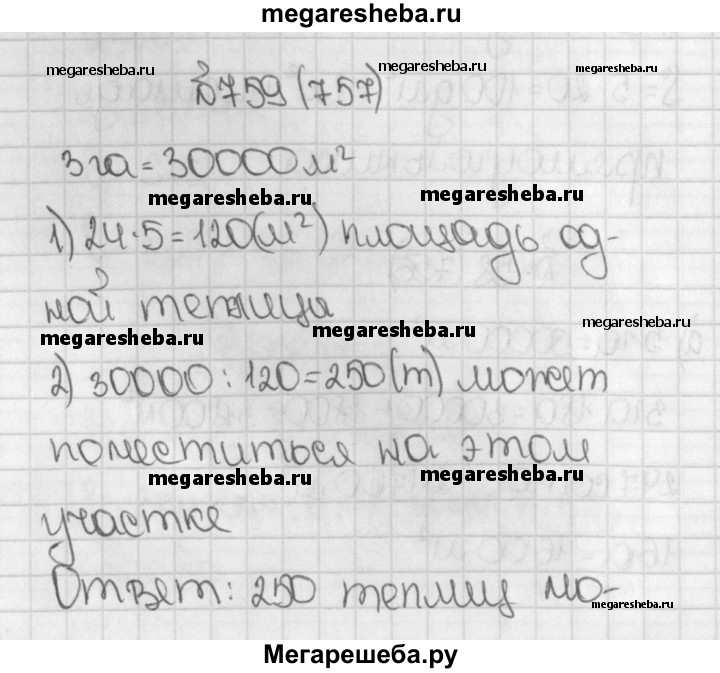 megaresheba.ru
megaresheba.ru
megaresheba.ru
megaresheba.ru
№759 (757)
3 га = 30000 м²
megaresheba.ru
megaresheba.ru
1) 24·5=120(м²) площадь од-
ной теплицы
megaresheba.ru
megaresheba.ru
megaresheba.ru
2) 30000 : 120=250(т) может
поместиться на этом
megaresheba.ru
megaresheba.ru
участке
Ответ: 250 теплиц мо-
megaresheba.ru
Мегарешеба.ру